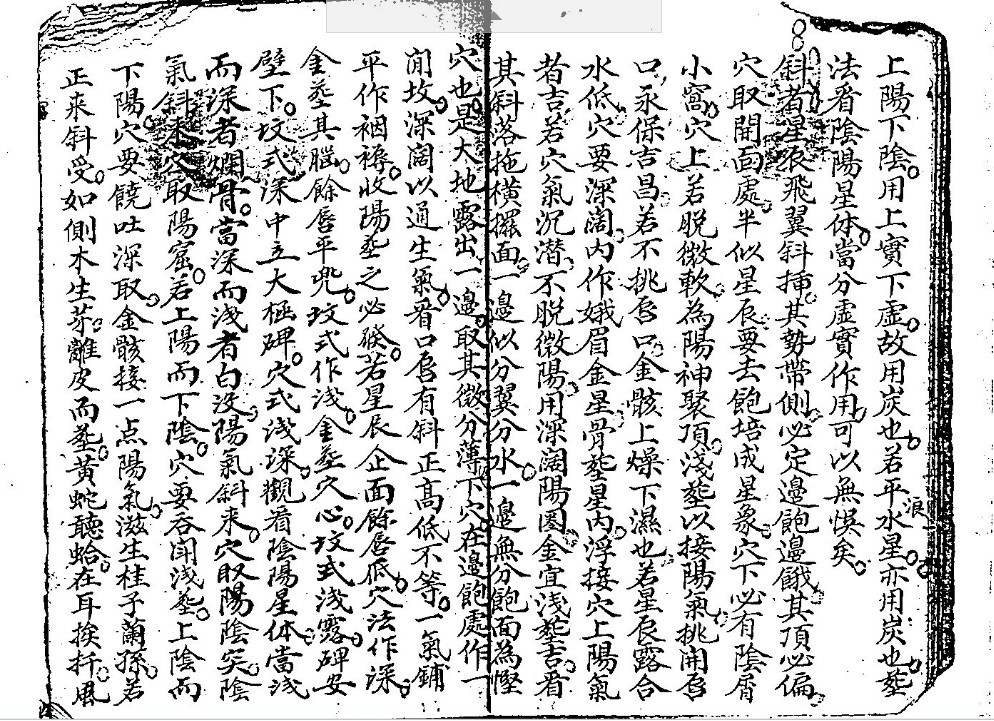 上陽下陰用上實下虛故用炭也若平水星亦用炭也塟
浪
法看陰陽星体當分虛實作用可以無悞矣
斜者星辰飛翼斜揷其勢帶側必定邊飽邊餓其頂必偏
穴取開面處半似星辰要去飽培成星象穴下必有陰屑
小窩穴上若脫微軟為陽神聚頂淺塟以接陽氣挑開唇
口永保吉昌若不挑唇口金骸上燥下濕也若星辰露合
水低穴要深濶内作娥眉金星骨塟星内浮接穴上陽氣
者吉若穴氣沉潜不脫微陽用深濶陽圂金宜浅塟吉看
其斜落拖橫擺面一邊似分翼分水一邊無分飽面為慳
穴也是大地露出一邊取其微分薄下穴在邊飽處作一
開坟深濶以通生氣看口唇有斜正高低不等一氣鋪
平作裀褥收陽塟之必發若星辰企面餘唇低穴法作深
金塟其腽餘唇平兜坟式作浅金塟穴心坟式浅露碑安
壁下坟式深中立大極碑穴式浅深觀看陰陽星体當浅
而深者爛骨當深而浅者白没陽氣斜来穴取陽陰突陰
氣斜来穴取陽窟若上陽而下陰穴要吞開浅塟上陰而
下陽穴要饒吐深取金骸接一点陽氣滋生桂子蘭孫若
正来斜受如側木生芽離皮而塟黃蛇聽蛤在耳挨扦風